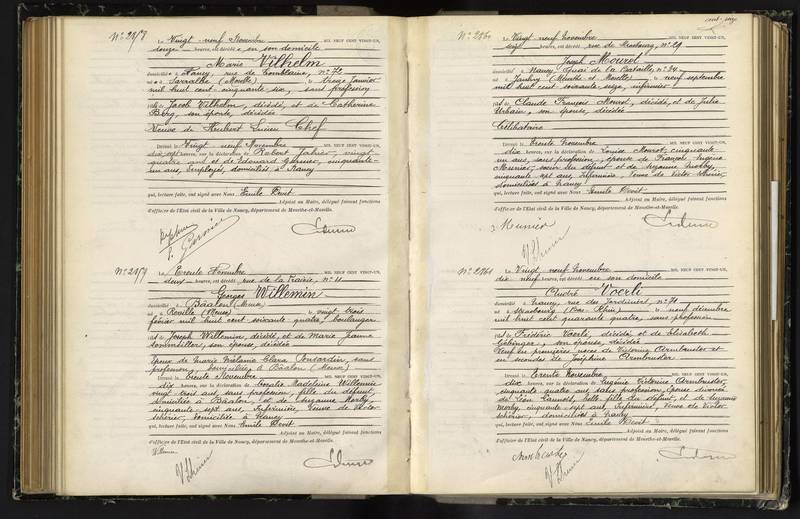 N° 2458
Le Vingt neuf Novembre MIL NEUF CENT VINGT-UN,
douze heures, est décédée en son domicile
Marie Vilhelm
domiciliée à Nancy, rue de Tomblaine, n° 72
née à Sarralbe (Moselle) le treize Janvier
mil huit cent cinquante six, sans profession
fille de Jacob Vilhelm, décédé, et de Catherine
Berg, son épouse, décédée
Veuve de Hubert Lucien Chef
Dressé le Vingt neuf Novembre MIL NEUF CENT VINGT-UN,
dix sept heures, sur la déclaration de Robert vingt
quatre ans et de Edouard Garnier, cinquante
un ans, employés, domiciliés à Nancy
qui, lecture faite, ont signé avec Nous Emile Devit
Adjoint au Maire, délégué faisant fonctions
d'officier de l'Etat civil de la Ville de Nancy, département de Meurthe-et-Moselle.
N° 2459
Le Trente Novembre MIL NEUF CENT VINGT-UN,
deux heures, est décédé rue de la Prairie, n° 11
Georges Willemin
domicilié à Baâlon (Meuse)
né à Réville (Meuse) le vingt trois
février mil huit cent soixante quatre, boulanger
fils de Joseph Willemin, décédé, et de Marie Jeanne
son épouse, décédée
Epoux de Marie Mélanie Clara sans
profession, domiciliée à Baâlon (Meuse)
Dressé le trente Novembre MIL NEUF CENT VINGT-UN,
dix heures, sur la déclaration de Madeleine Willemin
vingt trois ans, sans profession, fille du défunt,
domiciliée à Baâlon, et de Suzanne Morby
cinquante sept ans, infirmière, Veuve de Victor
domiciliée à Nancy
qui, lecture faite, ont signé avec Nous Emile Devit
Adjoint au Maire, délégué faisant fonctions
d'officier de l'Etat civil de la Ville de Nancy, département de Meurthe-et-Moselle.
Willemin
N° 2460
Le Vingt neuf Novembre MIL NEUF CENT VINGT-UN,
seize heures, est décédé rue de Strasbourg, n° 29
Joseph Mourot
domicilié à Nancy, Quai de la Bataille, n° 24
né à (Meurthe et Moselle) le neuf septembre
mil huit cent soixante seize, infirmier
fils de Claude François Mourot, décédé, et de Julie
Urbain, son épouse, décédée
Célibataire
Dressé le trente Novembre MIL NEUF CENT VINGT-UN,
dix heures, sur la déclaration de Louise Mourot, cinquante
un ans, sans profession, épouse de François Eugène
Meunier, soeur du défunt et de Suzanne Morby,
cinquante sept ans, infirmière, Veuve de Victor
domiciliées à Nancy
qui, lecture faite, ont signé avec Nous Emile Devit
Adjoint au Maire, délégué faisant fonctions
d'officier de l'Etat civil de la Ville de Nancy, département de Meurthe-et-Moselle.
Meunier
N° 2461
Le Vingt neuf Novembre MIL NEUF CENT VINGT-UN,
dix neuf heures, est décédé en son domicile
André Voerli
domicilié à Nancy, rue des Jardiniers, n° 71
né à Strasbourg (Bas Rhin) le neuf décembre
mil huit cent quarante quatre, sans profession
fils de Frédéric Voerli, décédé, et de Elisabeth
son épouse, décédée
Veuf en premières noces de Victorine Armbruster et
en secondes de Joséphine Armbruster
Dressé le Trente Novembre MIL NEUF CENT VINGT-UN,
dix heures, sur la déclaration de Eugénie Victorine Armbruster,
cinquante quatre ans, sans profession, épouse divorcée
de Léon belle fille du défunt, et de Suzanne
Morby, cinquante sept ans, infirmière, Veuve de Victor
domiciliées à Nancy
qui, lecture faite, ont signé avec Nous Emile Devit
Adjoint au Maire, délégué faisant fonctions
d'officier de l'Etat civil de la Ville de Nancy, département de Meurthe-et-Moselle.